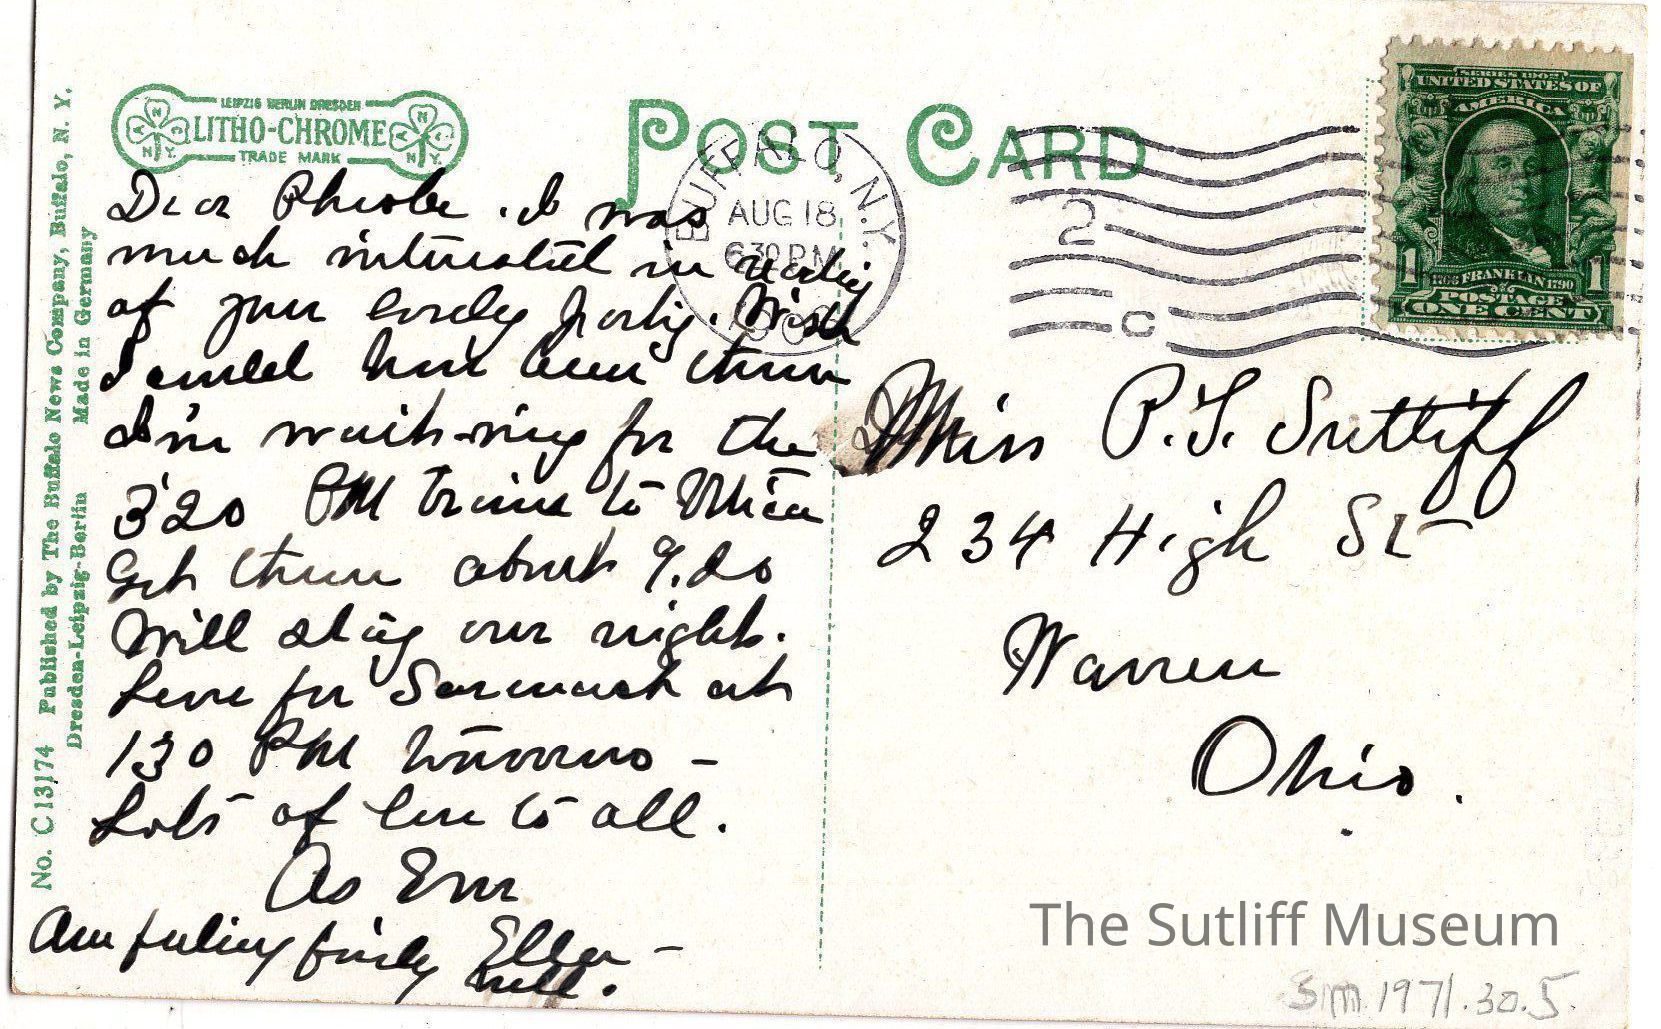 No. C13174 Published by The Buffalo News Company, Buffalo, N. Y.
Dresden-Leipzig-Berlin Made in Germany
LEIPZIG BERLIN DRESDEN
LITHO-CHROME
TRADE MARK
ANC N.Y.
ANC N.Y.
POST CARD
BUFFALO, N.Y.
AUG 18
630 PM
2
C
SERIES 1902
UNITED STATES OF
AMERICA
1 1
1706 FRANKLIN 1790
POSTAGE
ONE CENT
Dear Pheobe. I was
much interested in reading
of your lovely party. Wish
I could have been there
I'm waiting for the
3'20 PM train to Utica
Get there about 9.20
Will stay over night.
Leave for Saranack at
130 PM tomorrow -
Lots of love to all.
As Ever
Ella -
Am feeling fairly
well.
Miss P. T. Sutliff
234 High St
Warren
Ohio.
The Sutliff Museum
SM 1971.30.5.